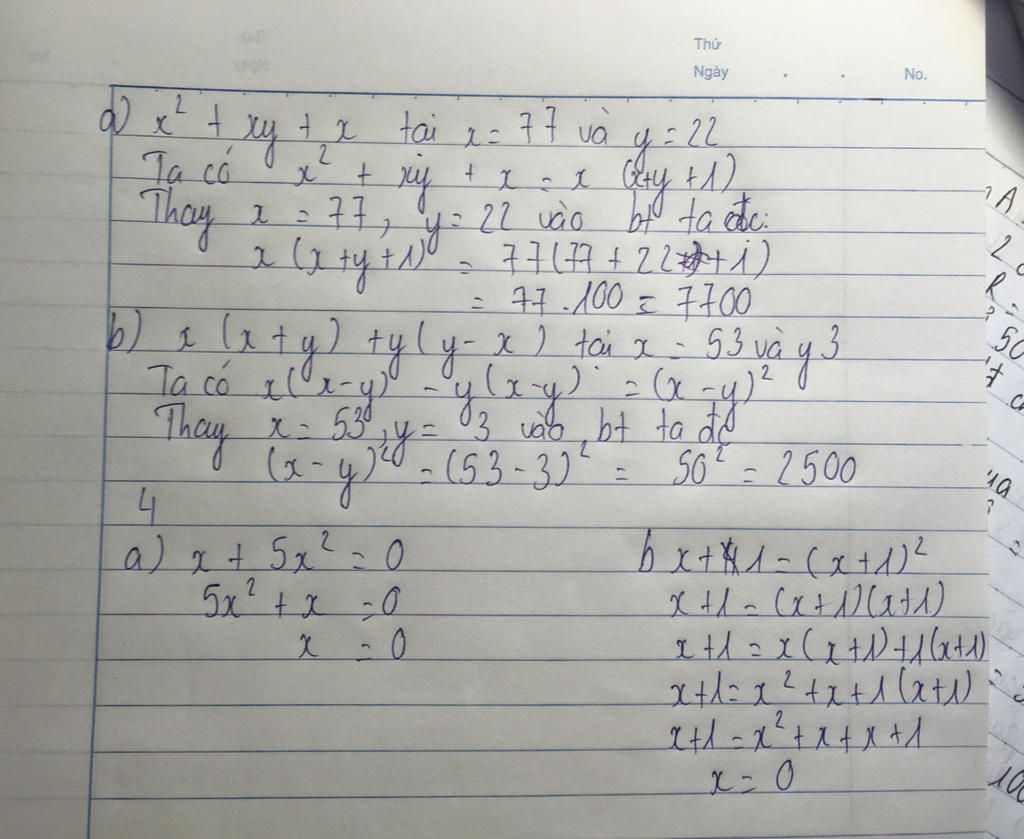 Thứ
Ngày . . No.
a) x² + xy + x tại x = 77 và y = 22
Ta có x² + xy + x = x (x+y +1)
Thay x = 77, y = 22 vào bt ta đc:
x (x+y+1) = 77(77 + 22 +1)
= 77 . 100 = 7700
b) x (x + y) + y ( y - x ) tại x = 53 và y 3
Ta có x( x-y) - y (x-y) = (x - y)²
Thay x = 53, y = 3 vào bt ta đc
(x - y)² = (53 - 3)² = 50² = 2500
4
a) x + 5x² = 0
5x² + x = 0
x = 0
b x + 1 = (x +1)²
x +1 = (x+1)(x+1)
x+1 = x ( x+1)+1(x+1)
x+1 = x² + x +1 (x+1)
x+1 = x² + x + x +1
x = 0